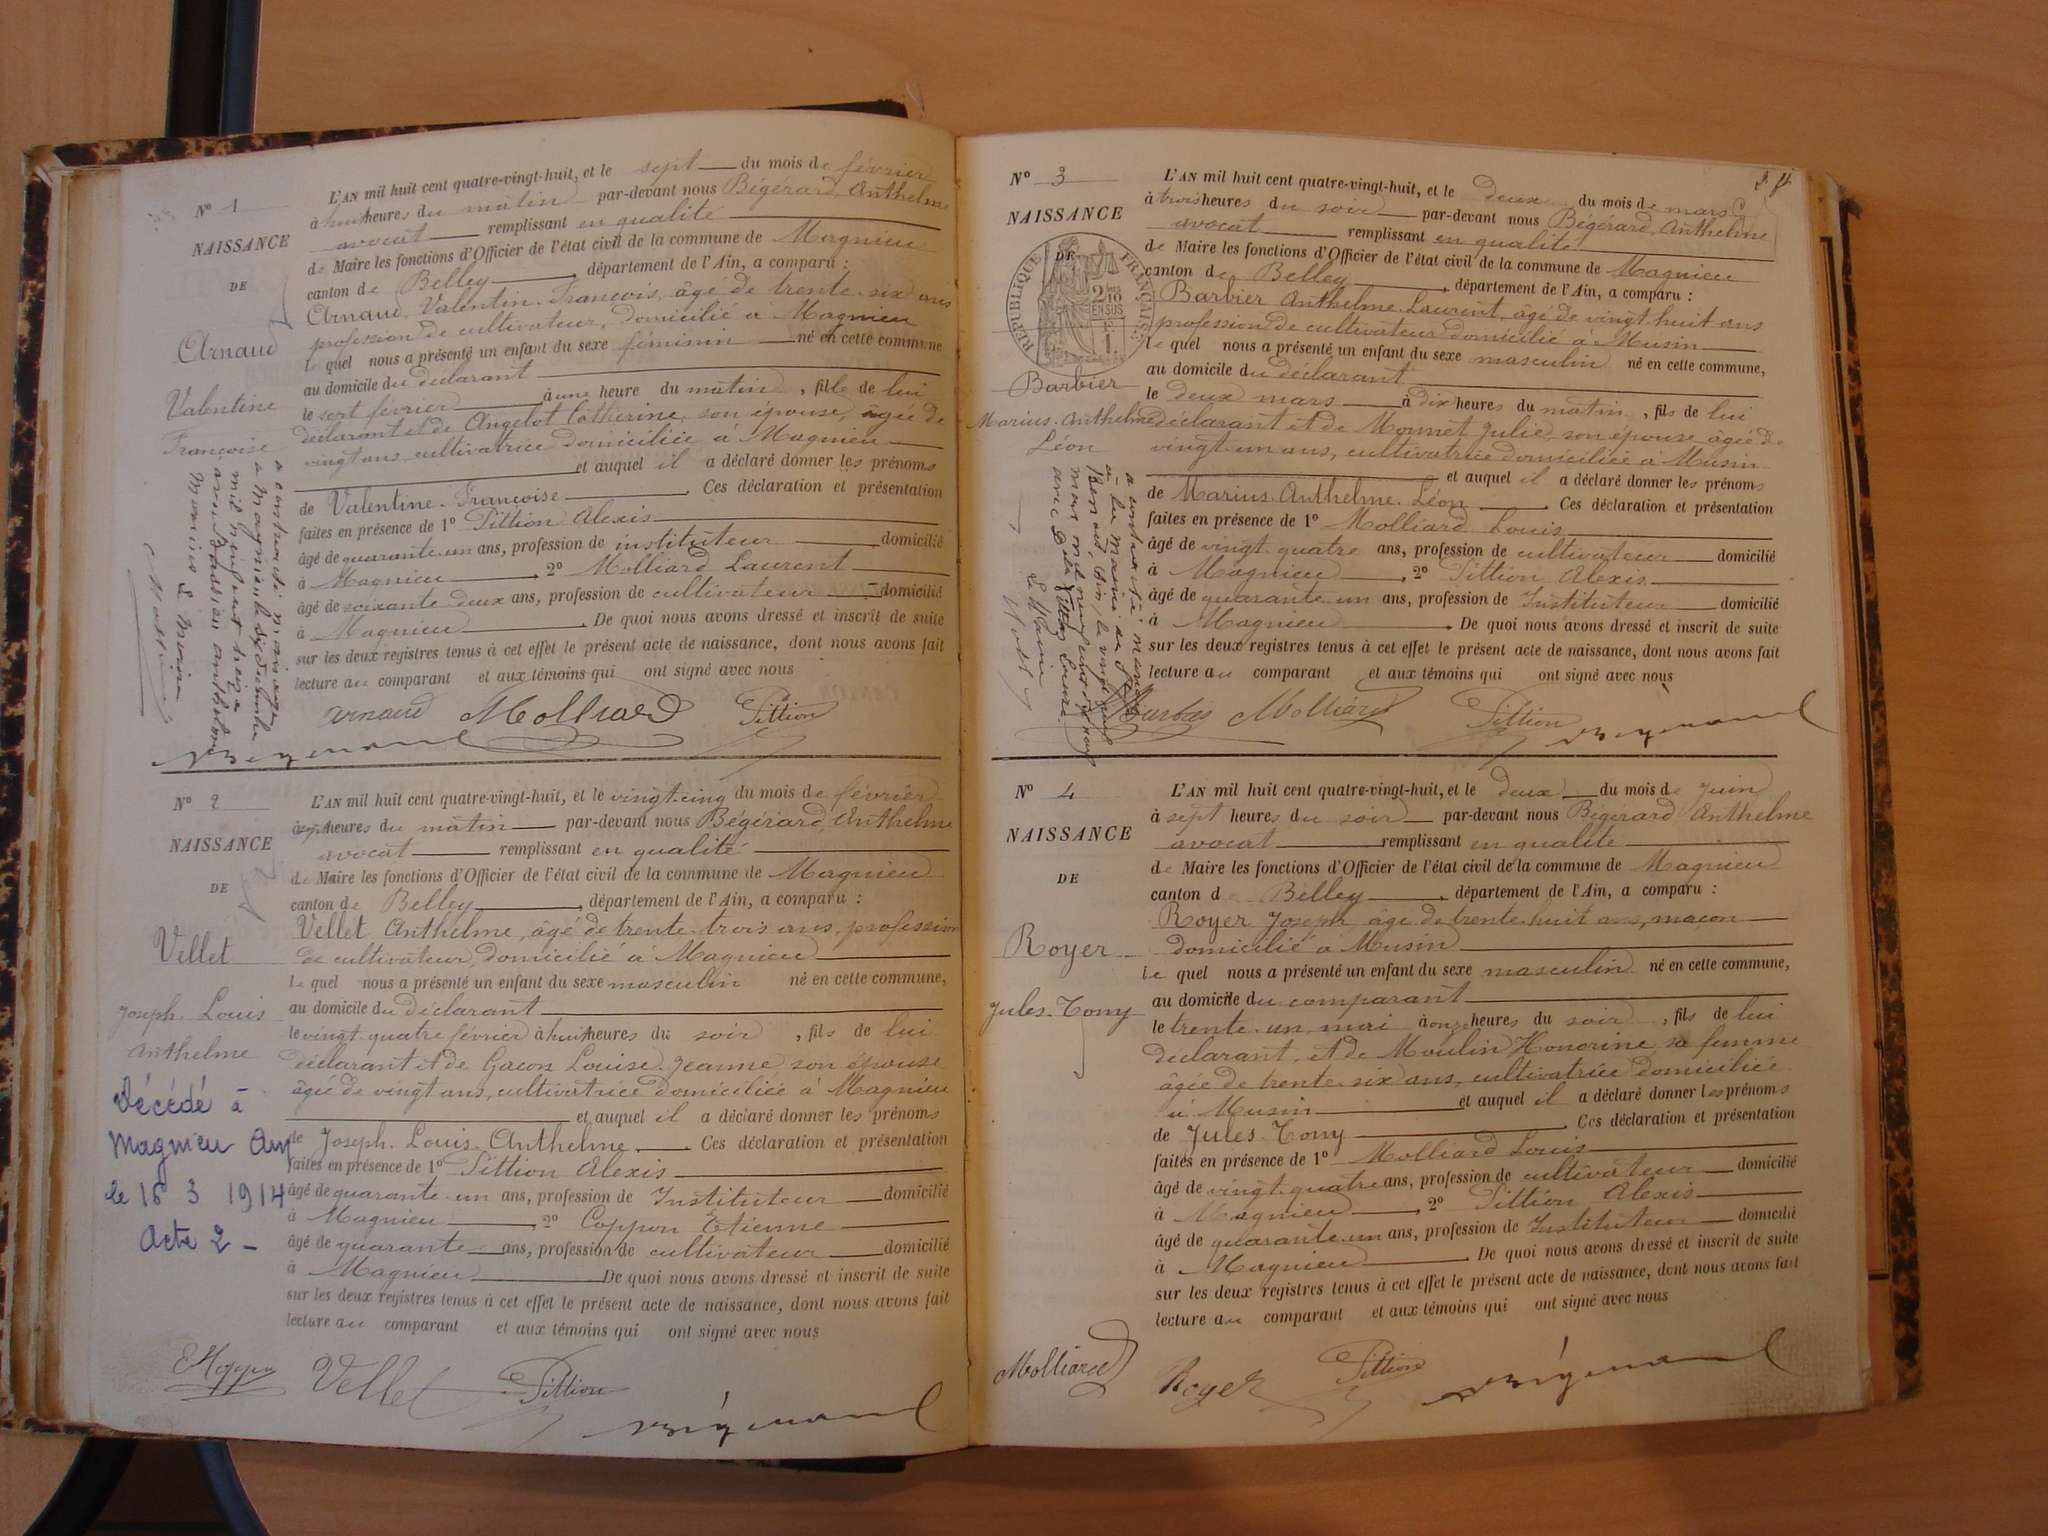 N° 1
NAISSANCE
DE
Arnaud
Valentine
Françoise
L'AN mil huit cent quatre-vingt-huit, et le sept du mois de février
à huit heures du matin par-devant nous Bégérard, Anthelme
avocat remplissant en qualité
de Maire les fonctions d'Officier de l'état civil de la commune de Magnieu
canton de Belley, département de l'Ain, a comparu :
Arnaud, Valentin-François, âgé de trente-six ans
profession de cultivateur, domicilié à Magnieu
le quel nous a présenté un enfant du sexe féminin né en cette commune
au domicile du déclarant
le sept février à une heure du matin, fille de lui
déclarant et de Angelot Catherine, son épouse, agée de
vingt ans, cultivatrice domiciliée à Magnieu
et auquel il a déclaré donner les prénoms
de Valentine-Françoise. Ces déclaration et présentation
faites en présence de 1° Pittion Alexis
âgé de quarante-un ans, profession de instituteur domicilié
à Magnieu, 2° Molliard Laurent
âgé de soixante-deux ans, profession de cultivateur domicilié
à Magnieu. De quoi nous avons dressé et inscrit de suite
sur les deux registres tenus à cet effet le présent acte de naissance, dont nous avons fait
lecture au comparant et aux témoins qui ont signé avec nous
Arnaud Molliard Pittion
a contracté mariage
a Magnieu le six décembre
mil neuf cent treize
avec
N° 2
NAISSANCE
DE
Vellet
Joseph-Louis
Anthelme
Décédé à
Magnieu Ain
le 16 3 1914
Acte 2 -
L'AN mil huit cent quatre-vingt-huit, et le vingt-cinq du mois de février
à sept heures du matin par-devant nous Bégérard, Anthelme
avocat remplissant en qualité
de Maire les fonctions d'Officier de l'état civil de la commune de Magnieu
canton de Belley, département de l'Ain, a comparu :
Vellet Anthelme, âgé de trente-trois ans, profession
de cultivateur, domicilié à Magnieu
le quel nous a présenté un enfant du sexe masculin né en cette commune,
au domicile du déclarant
le vingt-quatre février à huit heures du soir, fils de lui
déclarant et de Gacon Louise-Jeanne, son épouse
âgée de vingt ans, cultivatrice domiciliée à Magnieu
et auquel il a déclaré donner les prénoms
de Joseph-Louis-Anthelme. Ces déclaration et présentation
faites en présence de 1° Pittion Alexis
âgé de quarante-un ans, profession de Instituteur domicilié
à Magnieu, 2° Coppon Etienne
âgé de quarante ans, profession de cultivateur domicilié
à Magnieu De quoi nous avons dressé et inscrit de suite
sur les deux registres tenus à cet effet le présent acte de naissance, dont nous avons fait
lecture au comparant et aux témoins qui ont signé avec nous
Vellet Pittion
N° 3
NAISSANCE
DE
RÉPUBLIQUE FRANÇAISE
2/10
EN SUS
Barbier
Marius-Anthelme
Léon
L'AN mil huit cent quatre-vingt-huit, et le deux du mois de mars
à trois heures du soir par-devant nous Bégérard, Anthelme
avocat remplissant en qualité
de Maire les fonctions d'Officier de l'état civil de la commune de Magnieu
canton de Belley, département de l'Ain, a comparu :
Barbier Anthelme-Laurent, âgé de vingt-huit ans
profession de cultivateur domicilié à Musin
le quel nous a présenté un enfant du sexe masculin né en cette commune,
au domicile du déclarant
le deux mars à dix heures du matin, fils de lui
déclarant et de Monnet Julie, son épouse, âgée de
vingt-un ans, cultivatrice domiciliée à Musin
et auquel il a déclaré donner les prénoms
de Marius-Anthelme-Léon. Ces déclaration et présentation
faites en présence de 1° Molliard Louis
âgé de vingt-quatre ans, profession de cultivateur domicilié
à Magnieu, 2° Pittion Alexis
âgé de quarante-un ans, profession de Instituteur domicilié
à Magnieu. De quoi nous avons dressé et inscrit de suite
sur les deux registres tenus à cet effet le présent acte de naissance, dont nous avons fait
lecture au comparant et aux témoins qui ont signé avec nous
Barbier Molliard Pittion
N° 4
NAISSANCE
DE
Royer
Jules-Tony
L'AN mil huit cent quatre-vingt-huit, et le deux du mois de Juin
à sept heures du soir par-devant nous Bégérard Anthelme
avocat remplissant en qualité
de Maire les fonctions d'Officier de l'état civil de la commune de Magnieu
canton de Belley, département de l'Ain, a comparu :
Royer Joseph, âgé de trente-huit ans, maçon
domicilié à Musin
le quel nous a présenté un enfant du sexe masculin né en cette commune,
au domicile du comparant
le trente-un mai à onze heures du soir, fils de lui
déclarant, et de Moulin Honorine, sa femme
âgée de trente-six ans, cultivatrice domiciliée
à Musin et auquel il a déclaré donner les prénoms
de Jules-Tony. Ces déclaration et présentation
faites en présence de 1° Molliard Louis
âgé de vingt-quatre ans, profession de cultivateur domicilié
à Magnieu, 2° Pittion Alexis
âgé de quarante-un ans, profession de Instituteur domicilié
à Magnieu. De quoi nous avons dressé et inscrit de suite
sur les deux registres tenus à cet effet le présent acte de naissance, dont nous avons fait
lecture au comparant et aux témoins qui ont signé avec nous
Molliard Royer Pittion